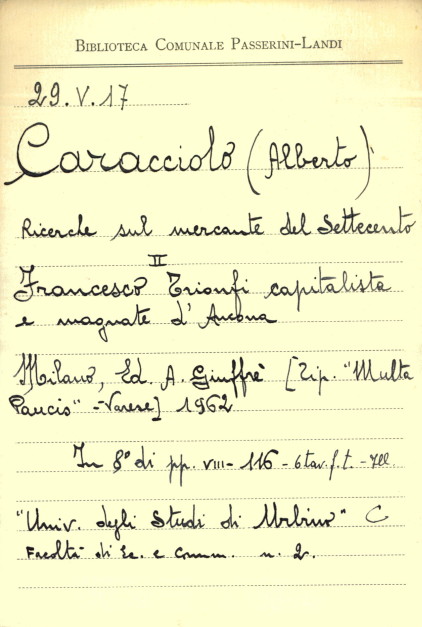 BIBLIOTECA COMUNALE PASSERINI-LANDI
29.V.17
Caracciolo (Alberto)
Ricerche sul mercante del Settecento
II
Francesco Trionfi capitalista
e magnate d'Ancona
Milano, Ed. A. Giuffrè [Tip. "Multa
Paucis" - Varese] 1962
In 8° di pp. VIII - 116 - 6 tav. f. t. - Ill.
"Univ. degli Studi di Urbino" C
Facoltà di Ec. e Comm. n. 2.